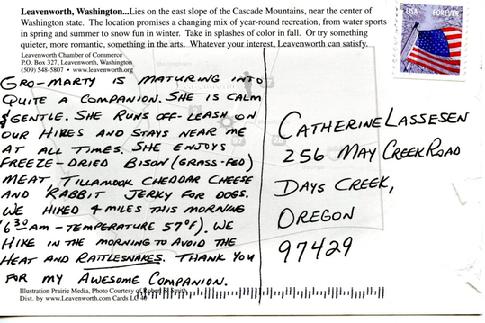 Leavenworth, Washington...Lies on the east slope of the Cascade Mountains, near the center of
Washington state. The location promises a changing mix of year-round recreation, from water sports
in spring and summer to snow fun in winter. Take in splashes of color in fall. Or try something
quieter, more romantic, something in the arts. Whatever your interest, Leavenworth can satisfy.
Leavenworth Chamber of Commerce
P.O. Box 327, Leavenworth, Washington
(509) 548-5807 • www.leavenworth.org
USA FOREVER
GRO-MARTY IS MATURING INTO
QUITE A COMPANION. SHE IS CALM
& GENTLE. SHE RUNS OFF-LEASH ON
OUR HIKES AND STAYS NEAR ME
AT ALL TIMES. SHE ENJOYS
FREEZE-DRIED BISON (GRASS-FED)
MEAT, TILLAMOOK CHEDDAR CHEESE
AND RABBIT JERKY FOR DOGS.
WE HIKED 4 MILES THIS MORNING
(6:30 AM - TEMPERATURE 57°F). WE
HIKE IN THE MORNING TO AVOID THE
HEAT AND RATTLESNAKES. THANK YOU
FOR MY AWESOME COMPANION.
CATHERINE LASSESEN
256 MAY CREEK ROAD
DAYS CREEK,
OREGON
97429
Illustration Prairie Media, Photo Courtesy of
Dist. by www.Leavenworth.com Cards